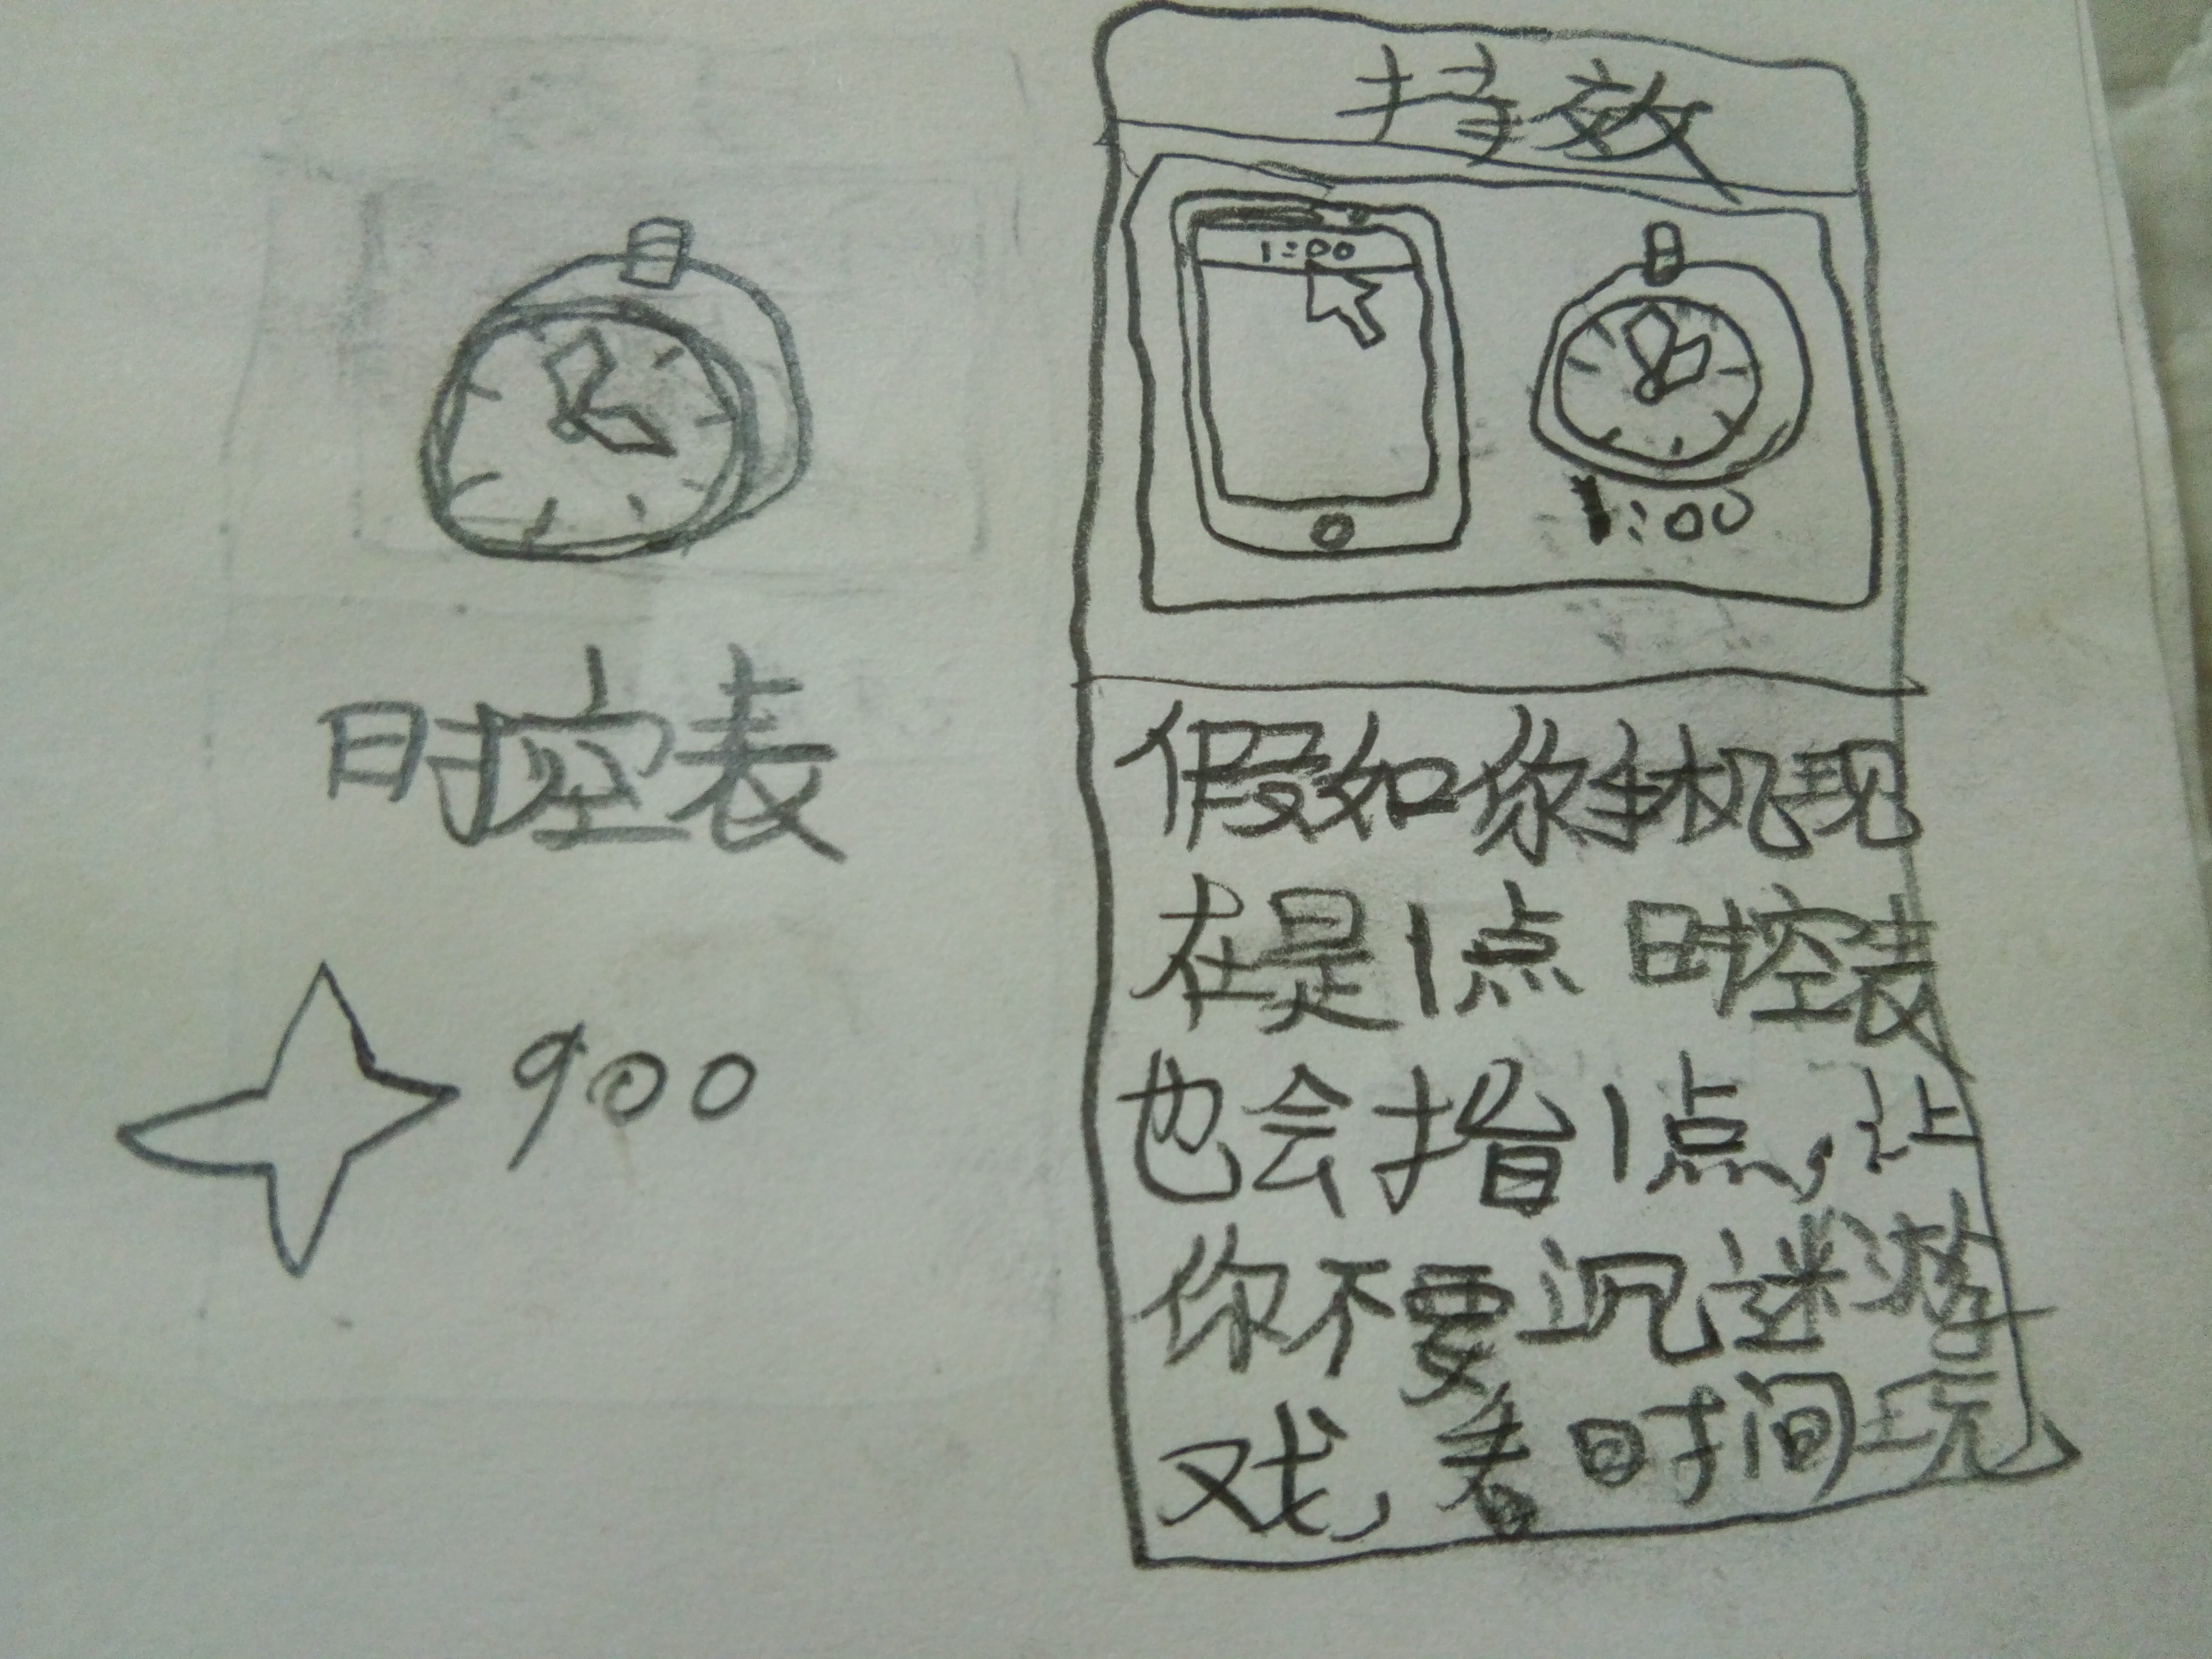 时控表
900
特效
1:00
1:00
假如你手机现
在是1点 时控表
也会指1点，让
你不要沉迷游
戏，看时间玩